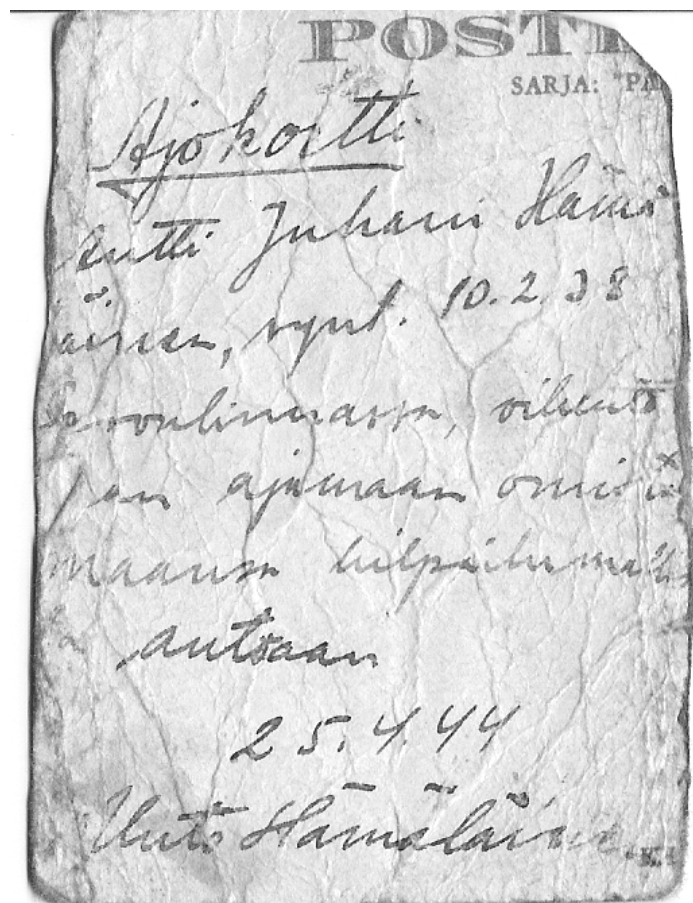 POSTI
SARJA: "PA
Ajokortti
Antti Juhani Hämä
läinen, synt. 10.2.38
Savonlinnassa, oikeute
taan ajamaan omista
maansa kilpailumallis
ta autoaan
25.4.44
Unto Hämäläinen